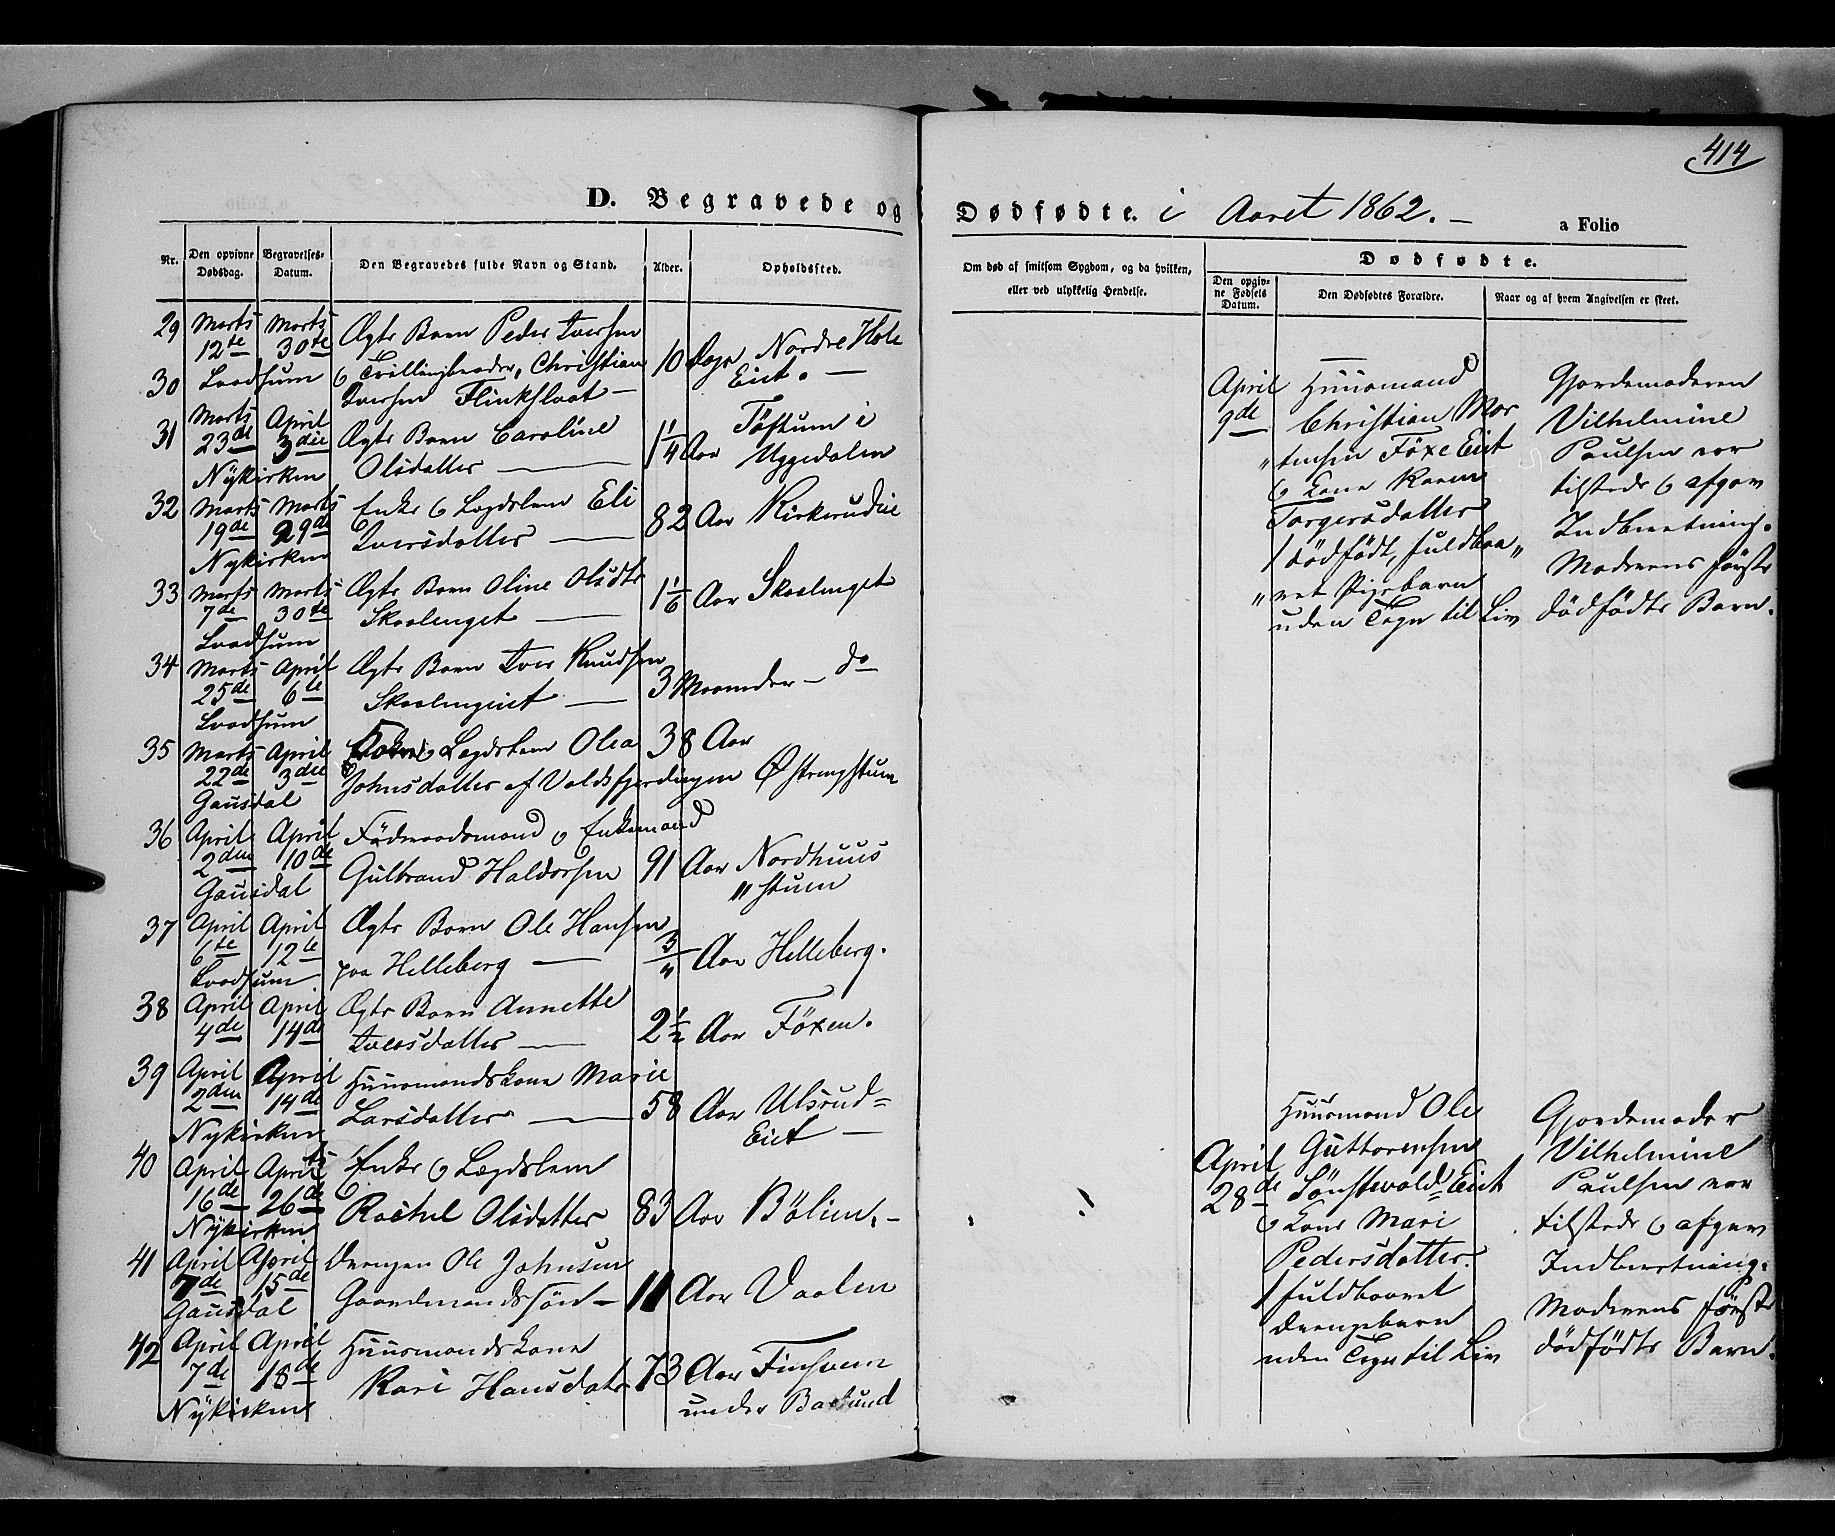 414
D. Begravede og Dødfødte. i Aaret 1862. –
a Folio
Nr.
Den opgivne Dødsdag.
Begravelses-Datum.
Den Begravedes fulde Navn og Stand.
Alder.
Opholdssted.
Om død af smitsom Sygdom, og da hvilken,
eller ved ulykkelig Hendelse.
Dødfødte.
Den opgiv-
ne Fødsels
Datum.
Den Dødfødtes Forældre.
Naar og af hvem Angivelsen er skeet.
29 Marts Marts Ægte Barn Peder Iversen
12te 30te
30 Svadsum & Tvillingbroder, Christian 10 Dage Nordre Hole
Iversen Flinkslaat – Eiet. –
31 Marts April Ægte Barn Caroline 1 1/4 Aar Töstum i
23de 3die Olsdatter — Uggedalen
Nykirken
32 Marts Marts Enke & Lægdslem Eli 82 Aar Kirkerudie
19de 29de Iversdatter —
Nykirken
33 Marts Marts Ægte Barn Oline Olsdtr 1 1/6 Aar Skaalenget
7de 30te Skaalenget —
Svadsum
34 Marts April Ægte Barn Iver Knudsen 3 Maaneder – do
25de 6te Skaalengiet —
Svadsum
35 Marts April Lægdslem Olea 38 Aar
22de 3die Johnsdatter af Valdsfjerdingen Østrengstuen
Gausdal
36 April April Föderaadsmand & Enkemand
2den 10de Gulbrand Haldorsen 91 Aar Nordhuus
Gausdal "stuen
37 April April Ægte Barn Ole Hansen
6te 12te paa Helleberg — 3/4 Aar Helleberg.
Svadsum
38 April April Ægte Barn Annette
4de 14de Iversdatter — 2 1/2 Aar Föxen.
39 April April Huusmandskone Marie
2den 14de Larsdatter — 58 Aar Ulsrud=
Nykirken Eiet –
40 April April Enke & Lægdslem
16de 26de Rachel Olsdatter 83 Aar Bölien. –
Nykirken
41 April April Drengen Ole Johnsen
7de 15de Gaardmands sön – 11 Aar Vaalen
Gausdal
42 April April Huusmandskone
7de 18de Kari Hansdatr 73 Aar Finsveen
Nykirken under Baklund
April Huusmand
9de Christian Mor
"tensen Föxe Eiet
& Kone Karen
Torgersdatter
1 dödfödt, fuldbaa"
"ret Pigebarn
uden Tegn til Liv
Gjordemoderen
Vilhelmine
Paulsen var
tilstede & afgav
Indberetning.
Moderens förste
dödfödte Barn.
Huusmand Ole
April Guttormsen
28de Sönstevold=Eiet
& Kone Mari
Pedersdatter.
1 fuldbaaret
Drengebarn
uden Tegn til Liv
Gjordemoder
Vilhelmine
Paulsen var
tilstede & afgav
Indberetning.
Moderens förste
dödfödte Barn.